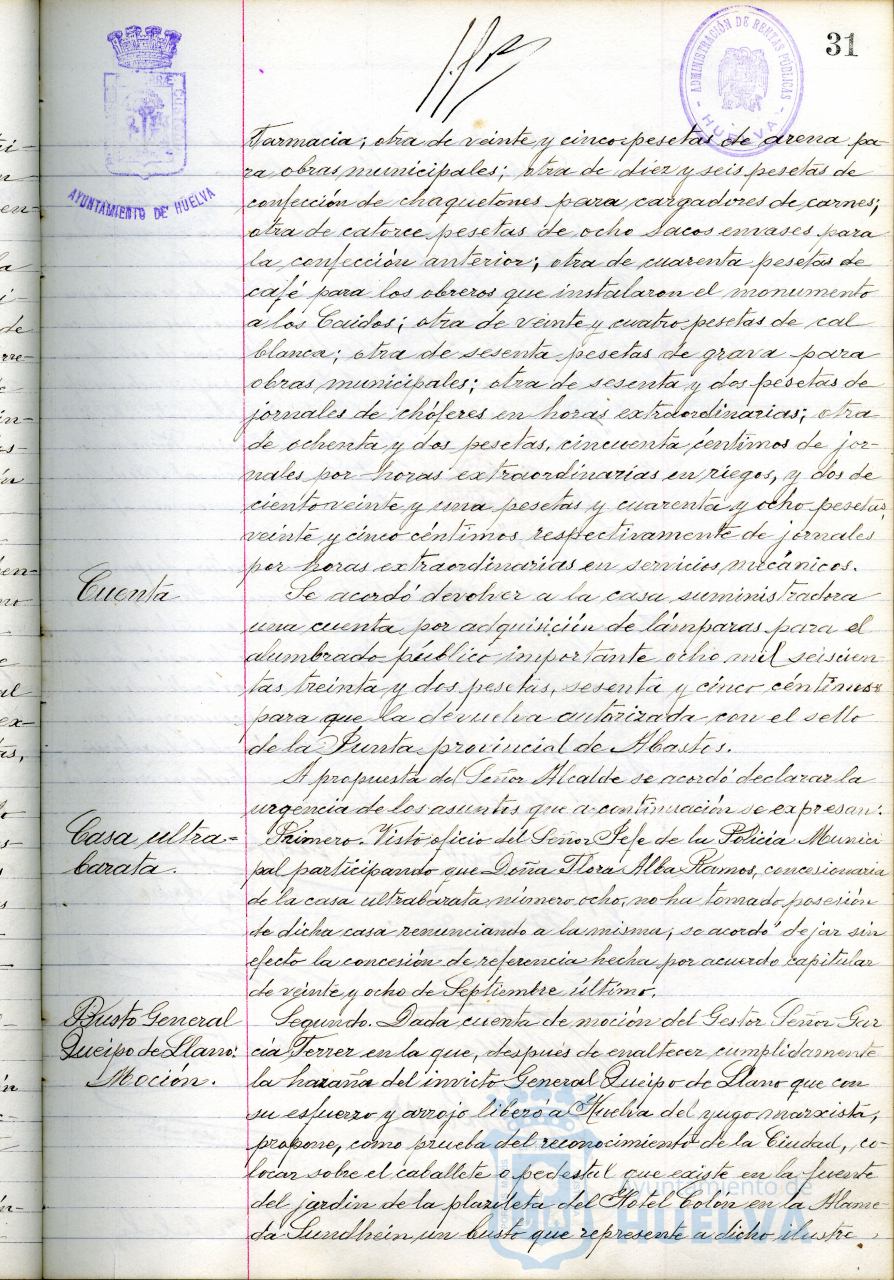 31
ADMINISTRACIÓN DE RENTAS PÚBLICAS
- HUELVA -
AYUNTAMIENTO DE HUELVA
Farmacia; otra de veinte y cinco pesetas de arena pa-
ra obras municipales; otra de diez y seis pesetas de
confección de chaquetones para cargadores de carnes;
otra de catorce pesetas de ocho sacos envases para
la confección anterior; otra de cuarenta pesetas de
café para los obreros que instalaron el monumento
a los Caidos; otra de veinte y cuatro pesetas de cal
blanca; otra de sesenta pesetas de grava para
obras municipales; otra de sesenta y dos pesetas de
jornales de chóferes en horas extraordinarias; otra
de ochenta y dos pesetas, cincuenta céntimos de jor-
nales por horas extraordinarias en riegos, y dos de
ciento veinte y una pesetas y cuarenta y ocho pesetas,
veinte y cinco céntimos respectivamente de jornales
por horas extraordinarias en servicios mecánicos.
Cuenta
Se acordó devolver a la casa suministradora
una cuenta por adquisición de lámparas para el
alumbrado público importante ocho mil seiscien-
tas treinta y dos pesetas, sesenta y cinco céntimos
para que la devuelva autorizada con el sello
de la Junta provincial de Abastos.
A propuesta del Señor Alcalde se acordó declarar la
urgencia de los asuntos que a continuación se expresan:
Casa ultra-
barata.
Primero. Visto oficio del Señor Jefe de la Policía Munici
pal participando que Doña Flora Alba Ramos, concesionaria
de la casa ultrabarata número ocho, no ha tomado posesión
de dicha casa renunciando a la misma; se acordó dejar sin
efecto la concesión de referencia hecha por acuerdo capitular
de veinte y ocho de Septiembre último.
Busto General
Queipo de Llano.
Moción.
Segundo. Dada cuenta de moción del Gestor Señor Gar
cía Ferrer en la que, después de enaltecer cumplidamente
la hazaña del invicto General Queipo de Llano que con
su esfuerzo y arrojo liberó a Huelva del yugo marxista,
propone, como prueba del reconocimiento de la Ciudad, co-
locar sobre el caballete o pedestal que existe en la fuente
del jardin de la plazileta del Hotel Colón en la Alame-
da Sundhein un busto que represente a dicho ilustre
Ayuntamiento de
HUELVA